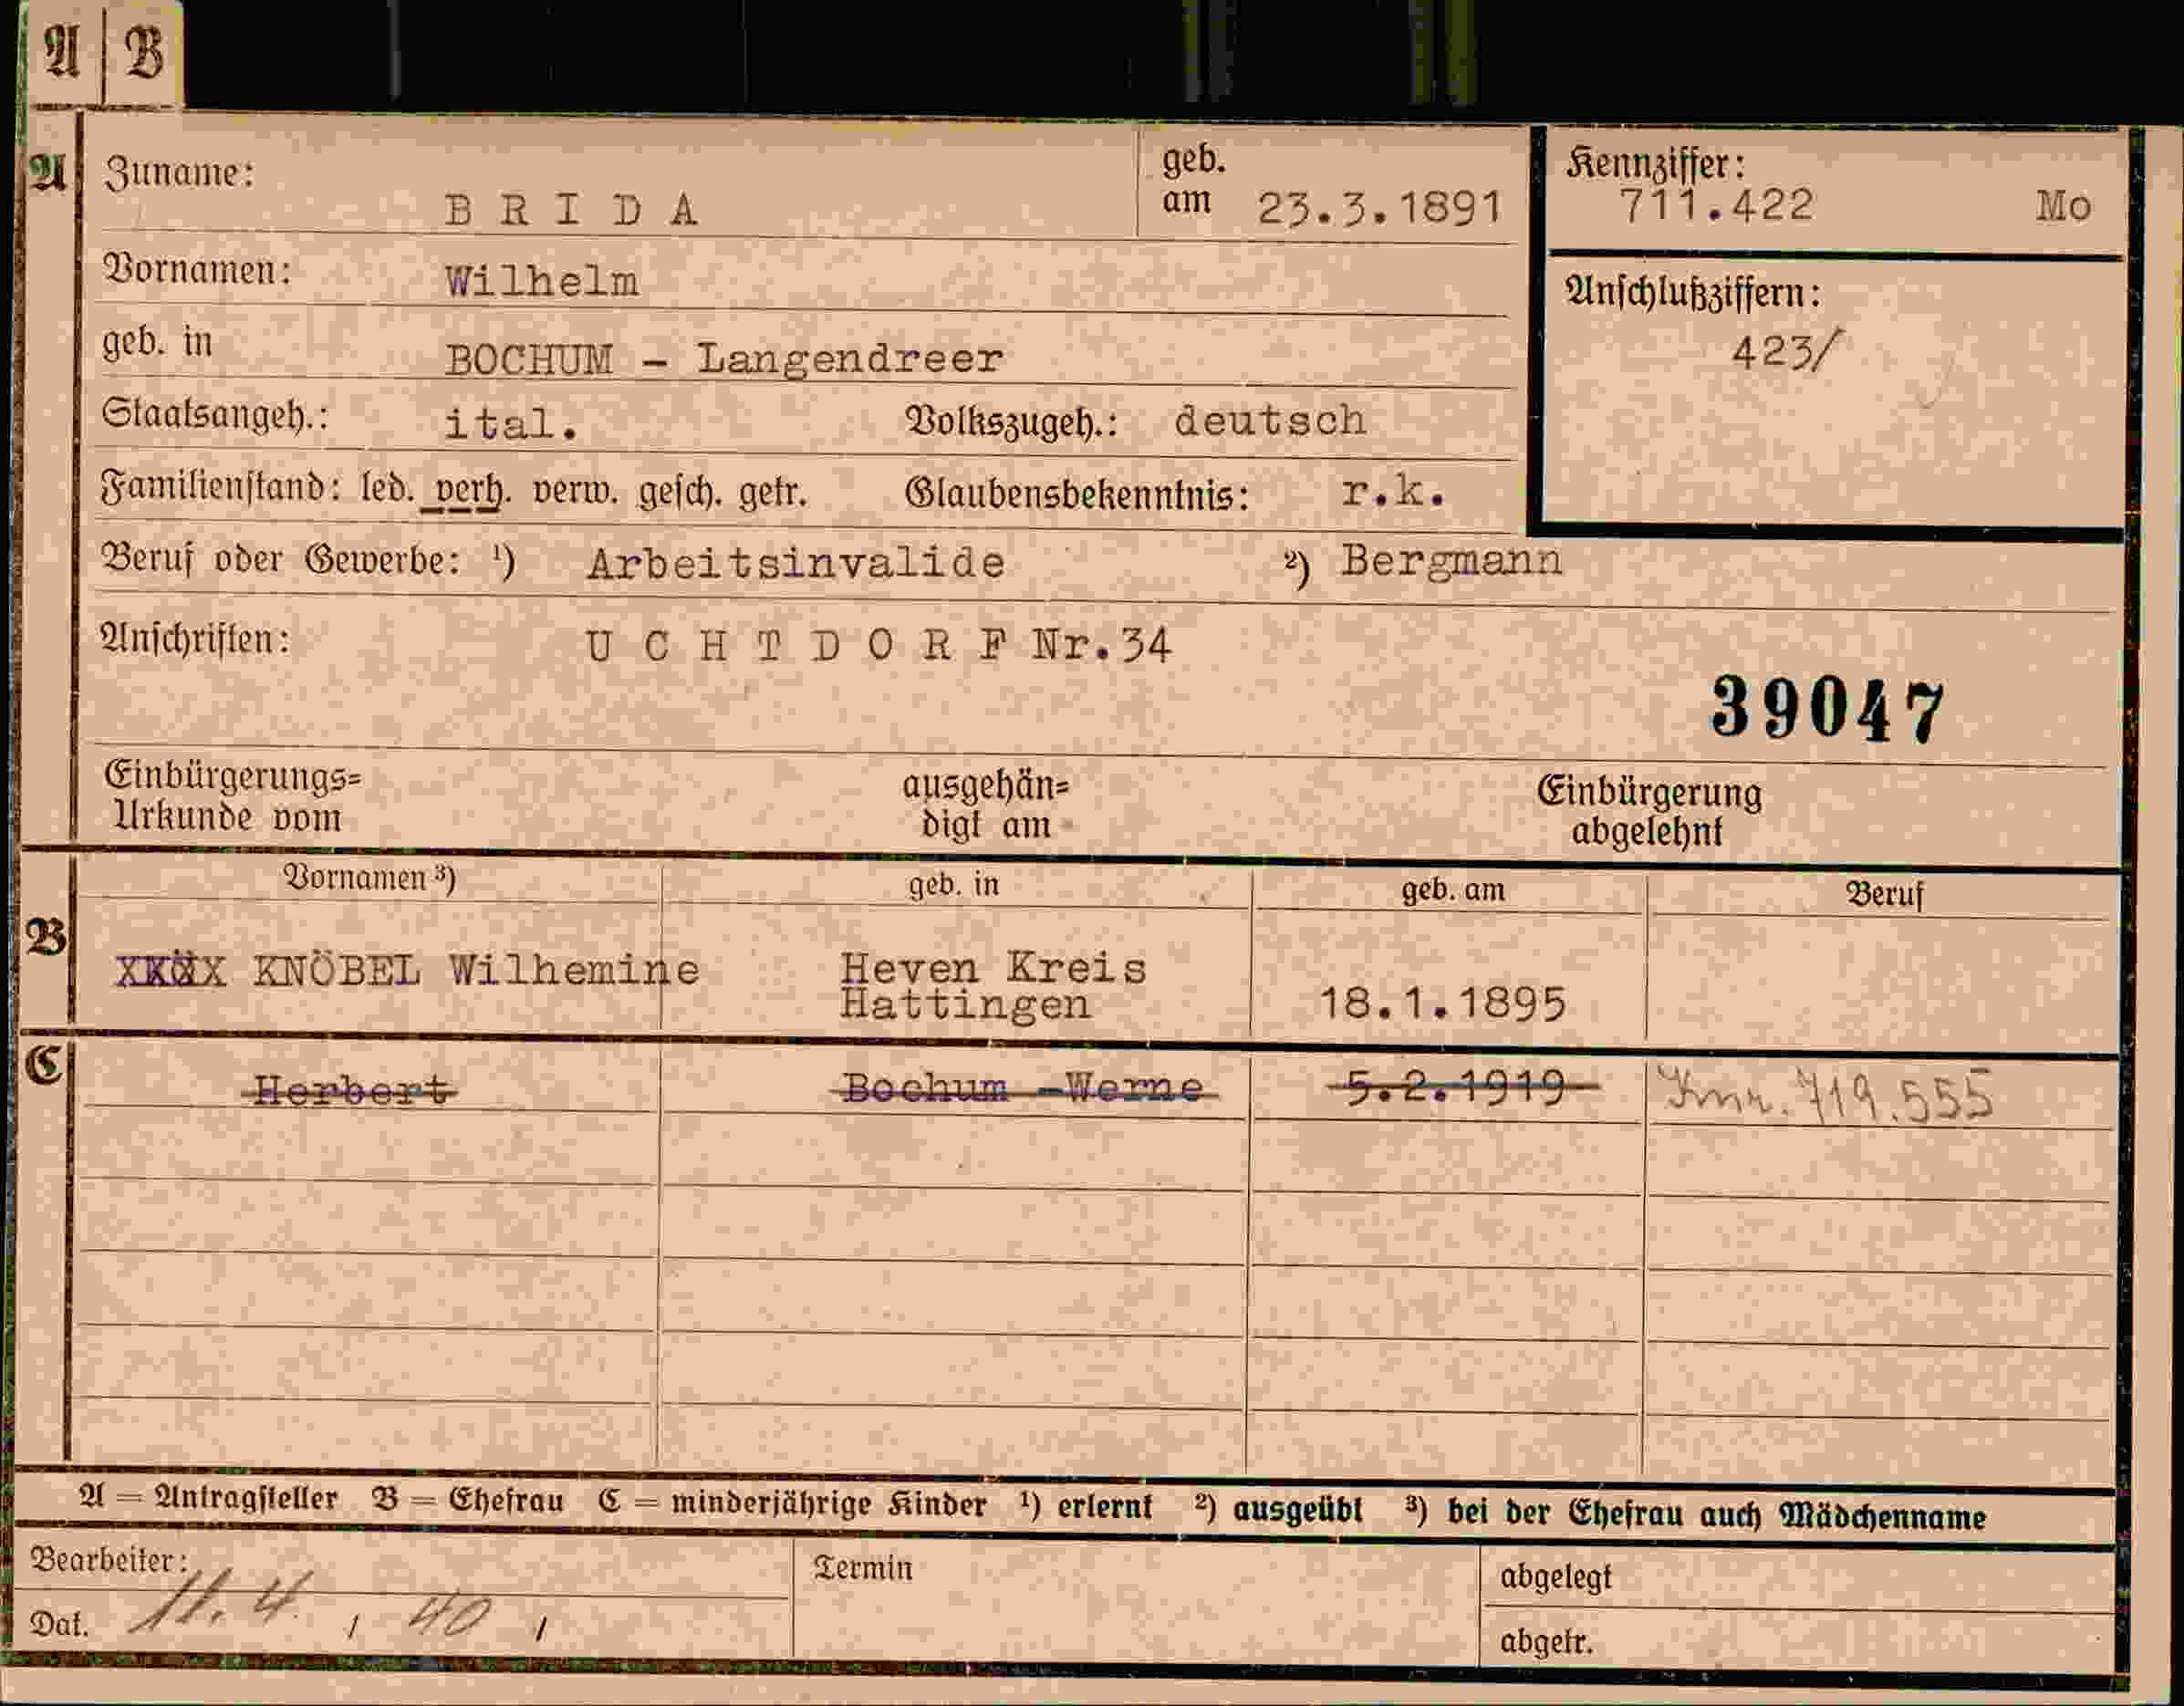 A B
A Zuname: BRIDA geb. am 23.3.1891
Kennziffer: 711.422 Mo
Vornamen: Wilhelm
Anschlußziffern: 423/
geb. in BOCHUM - Langendreer
Staatsangeh.: ital. Volkszugeh.: deutsch
Familienstand: led. verh. verw. gesch. getr. Glaubensbekenntnis: r.k.
Beruf oder Gewerbe: ¹) Arbeitsinvalide ²) Bergmann
Anschriften: UCHTDORF Nr.34
39047
Einbürgerungs=
Urkunde vom
ausgehän=
digt am
Einbürgerung
abgelehnt
Vornamen ³) geb. in geb. am Beruf
B KNÖBEL Wilhemine Heven Kreis
Hattingen 18.1.1895
C Herbert Bochum -Werne 5.2.1919 Knr. 719.555
A = Antragsteller B = Ehefrau C = minderjährige Kinder ¹) erlernt ²) ausgeübt ³) bei der Ehefrau auch Mädchenname
Bearbeiter: Termin abgelegt
Dat. 11.4. / 40 / abgetr.